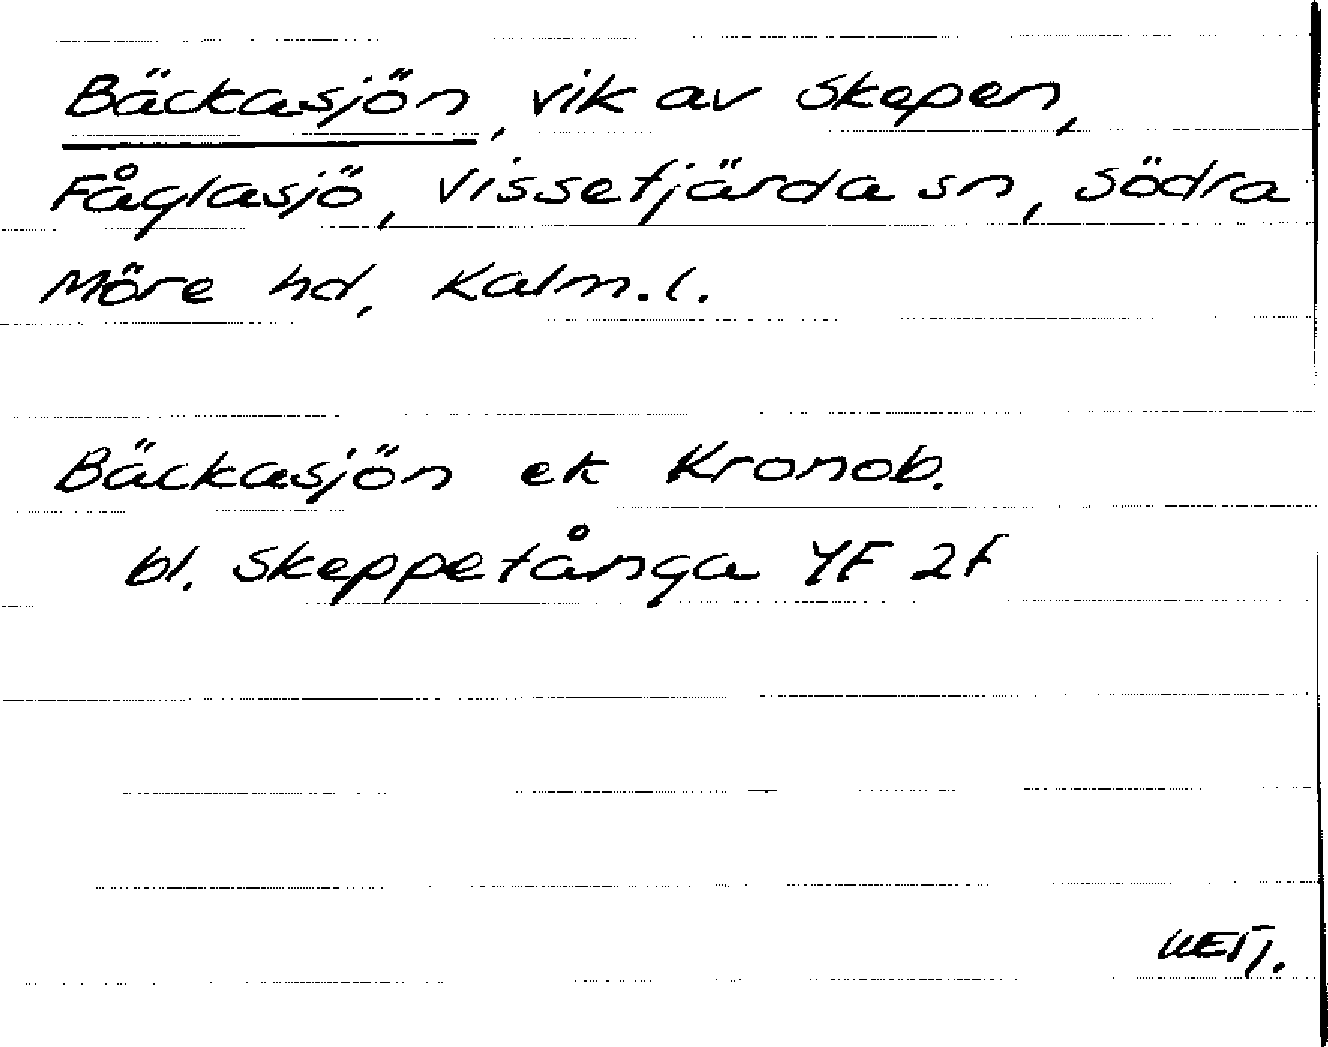 Bäckasjön, vik av Skepen,
Fåglasjö, Vissefjärda sn, Södra
Möre hd, Kalm.l.
Bäckasjön ek Kronob.
bl. Skeppetånga YF 2f